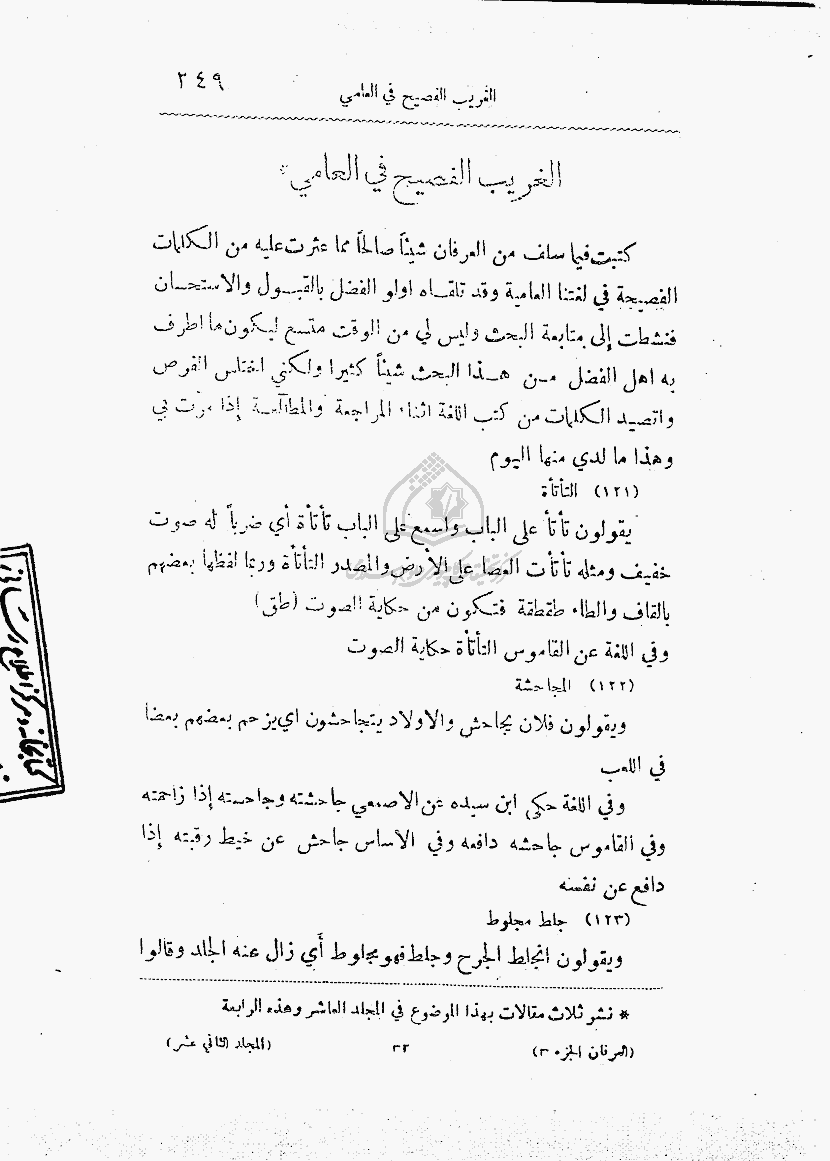 ٢٤٩
الغريب الفصيح في العامي
الغريب الفصيح في العامي*
كتبت فيما سلف من العرفان شيئاً صالحاً مما عثرت عليه من الكلمات
الفصيحة في لغتنا العامية وقد تلقاه اولو الفضل بالقبول والاستحسان
فنشطت إلى متابعة البحث وليس لي من الوقت متسع ليكون ما اطرف
به اهل الفضل من هذا البحث شيئاً كثيرا ولكني اختلس الفرص
واتصيد الكلمات من كتب اللغة اثناء المراجعة والمطالعة إذا مرّت بي
وهذا ما لدي منها اليوم
(١٢١) التأتأة
يقولون تأتأ على الباب واسمع على الباب تأتأة أي ضرباً له صوت
خفيف ومثله تأتأت العصا على الأرض والمصدر التأتأة وربما لفظها بعضهم
بالقاف والطاء طقطقة فتكون من حكاية الصوت (طق)
وفي اللغة عن القاموس التأتأة حكاية الصوت
(١٢٢) المجاحشة
ويقولون فلان يجاحش والاولاد يتجاحشون اي يزحم بعضهم بعضا
في اللعب
وفي اللغة حكى ابن سيده عن الاصمعي جاحشته وجاحسته إذا زاحمته
وفي القاموس جاحشه دافعه وفي الاساس جاحش عن خيط رقبته إذا
دافع عن نفسه
(١٢٣) جلط مجلوط
ويقولون انجلط الجرح وجلط فهو مجلوط أي زال عنه الجلد وقالوا
* نشر ثلاث مقالات بهذا الموضوع في المجلد العاشر وهذه الرابعة
(العرفان الجزء ٣) ٣٢ (المجلد الثاني عشر)